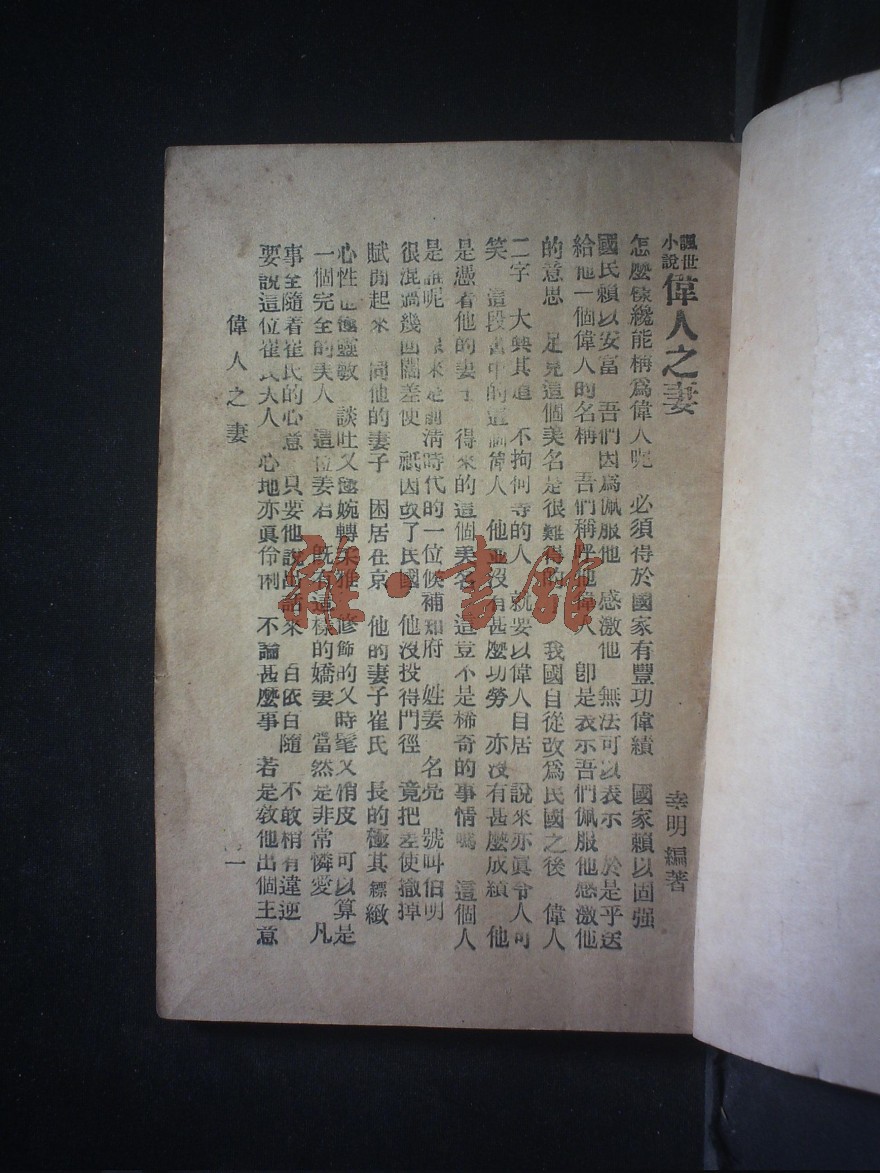 諷世小說 偉人之妻
幸明 編著
怎麼樣纔能稱爲偉人呢 必須得於國家有豐功偉績 國家賴以固强
國民賴以安富 吾們因爲佩服他 感激他 無法可以表示 於是乎送
給他一個偉人的名稱 吾們稱呼他偉人 卽是表示吾們佩服他感激他
的意思 足見這個美名是很難得的 我國自從改爲民國之後 偉人
二字 大興其道 不拘何等的人 就要以偉人自居 說來亦眞令人可
笑 這段書中的這個偉人 他並沒有甚麼功勞 亦沒有甚麼成績 他
是憑着他的妻子 得來的這個美名 這豈不是稀奇的事情嗎 這個人
是誰呢 原來是前淸時代的一位候補知府 姓姜 名亮 號叫伯明
很混過幾回闊差使 祇因改了民國 他沒投得門徑 竟把差使撤掉
賦閒起來 同他的妻子 困居在京 他的妻子崔氏 長的極其縹緻
心性也極靈敏 談吐又極婉轉柔雅 修飾的又時髦又悄皮 可以算是
一個完全的美人 這位姜君 旣有這樣的嬌妻 當然是非常憐愛 凡
事全隨着崔氏的心意 只要他說出話來 百依百隨 不敢梢有違逆
要說這位崔氏夫人 心地亦眞伶俐 不論甚麼事 若是敎他出個主意
偉人之妻
一
雜·書館